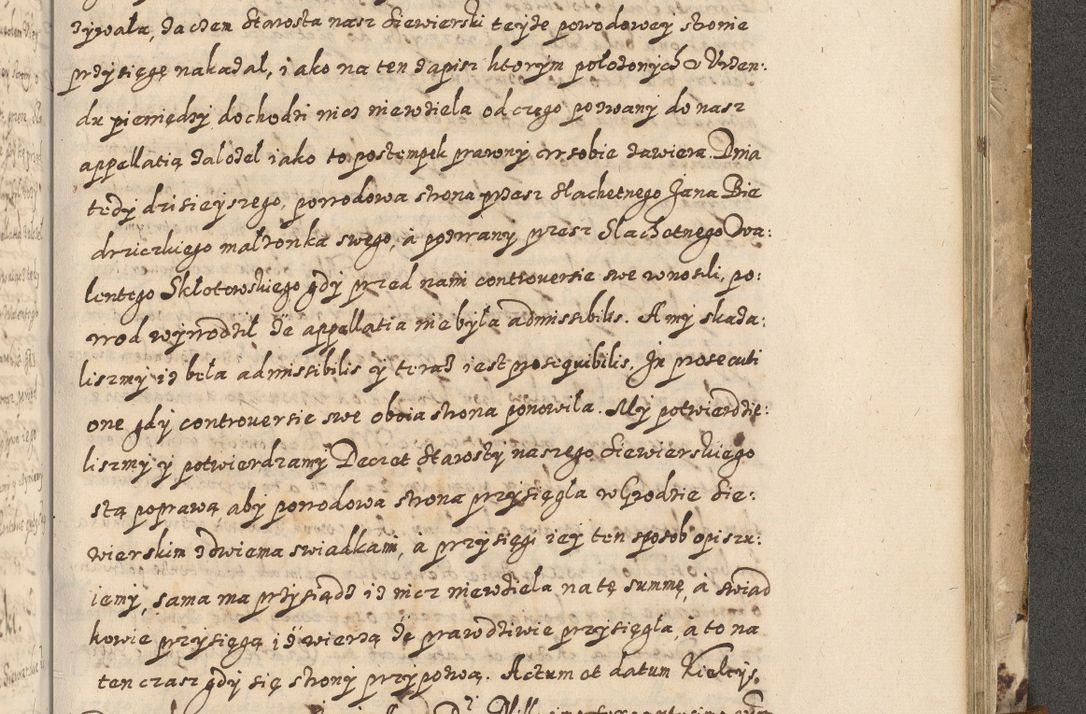 żywała, zaczem Starosta nasz Siewierski teyże powodowey stronie
przysięgę nakazał, iako na ten zapisz ktorym położonych Vrzen:
du pieniędzy dochodzi nicz niewzieła od czego pozwany do nasz
appellatią założeł iako to postempek prawny w sobie zawiera. Dnia
tedy dzisieyszego, powodowa strona przesz Slachetnego Jana Bie
drzickiego małżonka swego, á pozwany przesz Slachetnego Wa:
lentego Skłotowskiego gdy przed nami controuersie swe wnosili, po:
wod wywodził że appellatia nie była admissibilis. A my skaza:
liszmy iż beła admissibilis y teraz iest prosequibilis. In prosecuti
one gdy controuersie swe oboia strona ponowiła. My potwierdzie:
liszmy y potwierdzamy Decret Starosty naszego Siewierskiego
stą poprawą aby powodowa strona przysięgła w Grodzie Sie:
wierskim zdwiema swiadkami, á przysięgi iey ten sposob opiszu:
iemy, sama ma przysiądz iż nicz niewzieła na tę summę, a swiad
kowie przysięgą iż wierzą że prawdziwie przysięgła, á to na
ten czasz gdy się strony przypozwą. Actum et datum Kielcys.